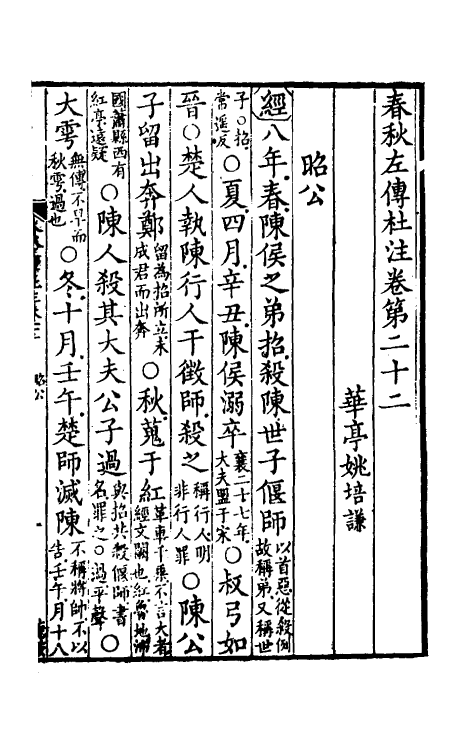 春秋左傳杜注卷第二十二
華亭姚培謙
昭公
經八年春陳侯之弟招殺陳世子偃師以首惡從殺例故稱弟又稱世
子○招常遥反○夏四月辛丑陳侯溺卒襄二十七年大夫盟于宋○叔弓如
晉○楚人執陳行人干徵師殺之稱行人明非行人罪○陳公
子留出奔鄭留為招所立未成君而出奔○秋蒐于紅革車千乘不言大者經文闕也紅魯地沛
國蕭縣西有紅亭遠疑○陳人殺其大夫公子過與招共殺偃師書名罪之○過平聲○
大雩無傳不旱而秋雩過也○冬十月壬午楚師滅陳不稱將帥不以告壬午月十八
昭公